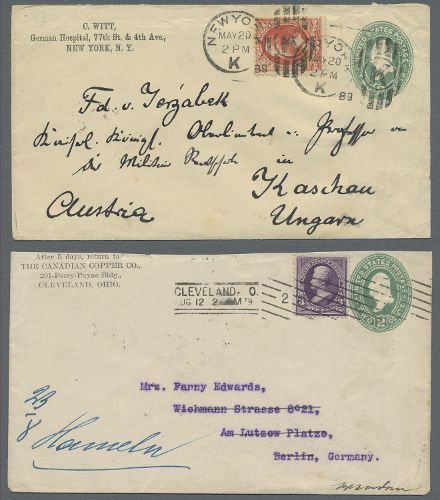 C. WITT,
German Hospital, 77th St. & 4th Ave.,
NEW YORK, N. Y.
NEW YORK
MAY 20
2 PM
K
89
MAY 20
2 PM
K
89
Fd. v.
Oberlieutenant u. Professor an
der Militär in
Kaschau
Austria
Ungarn
After 5 days, return to
THE CANADIAN COPPER CO.,
201-Perry-Payne Bldg.,
CLEVELAND, OHIO.
CLEVELAND, O.
UG 12 2- PM
2
UNITED STATES POSTAGE
2
Mrs. Fanny Edwards,
Wichmann Strasse 8021,
Am Lutzow Platze,
Berlin, Germany.
23/8
Hameln